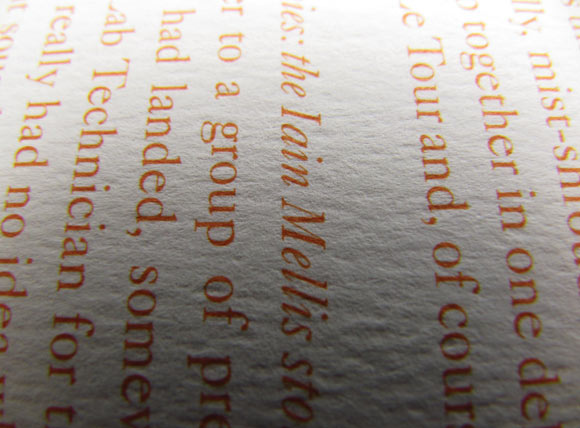 lly, mist-shrou
together in one de
e Tour and, of cours
ies: the Iain Mellis sto
er to a group of pre
had landed, somew
Lab Technician for t
really had no idea